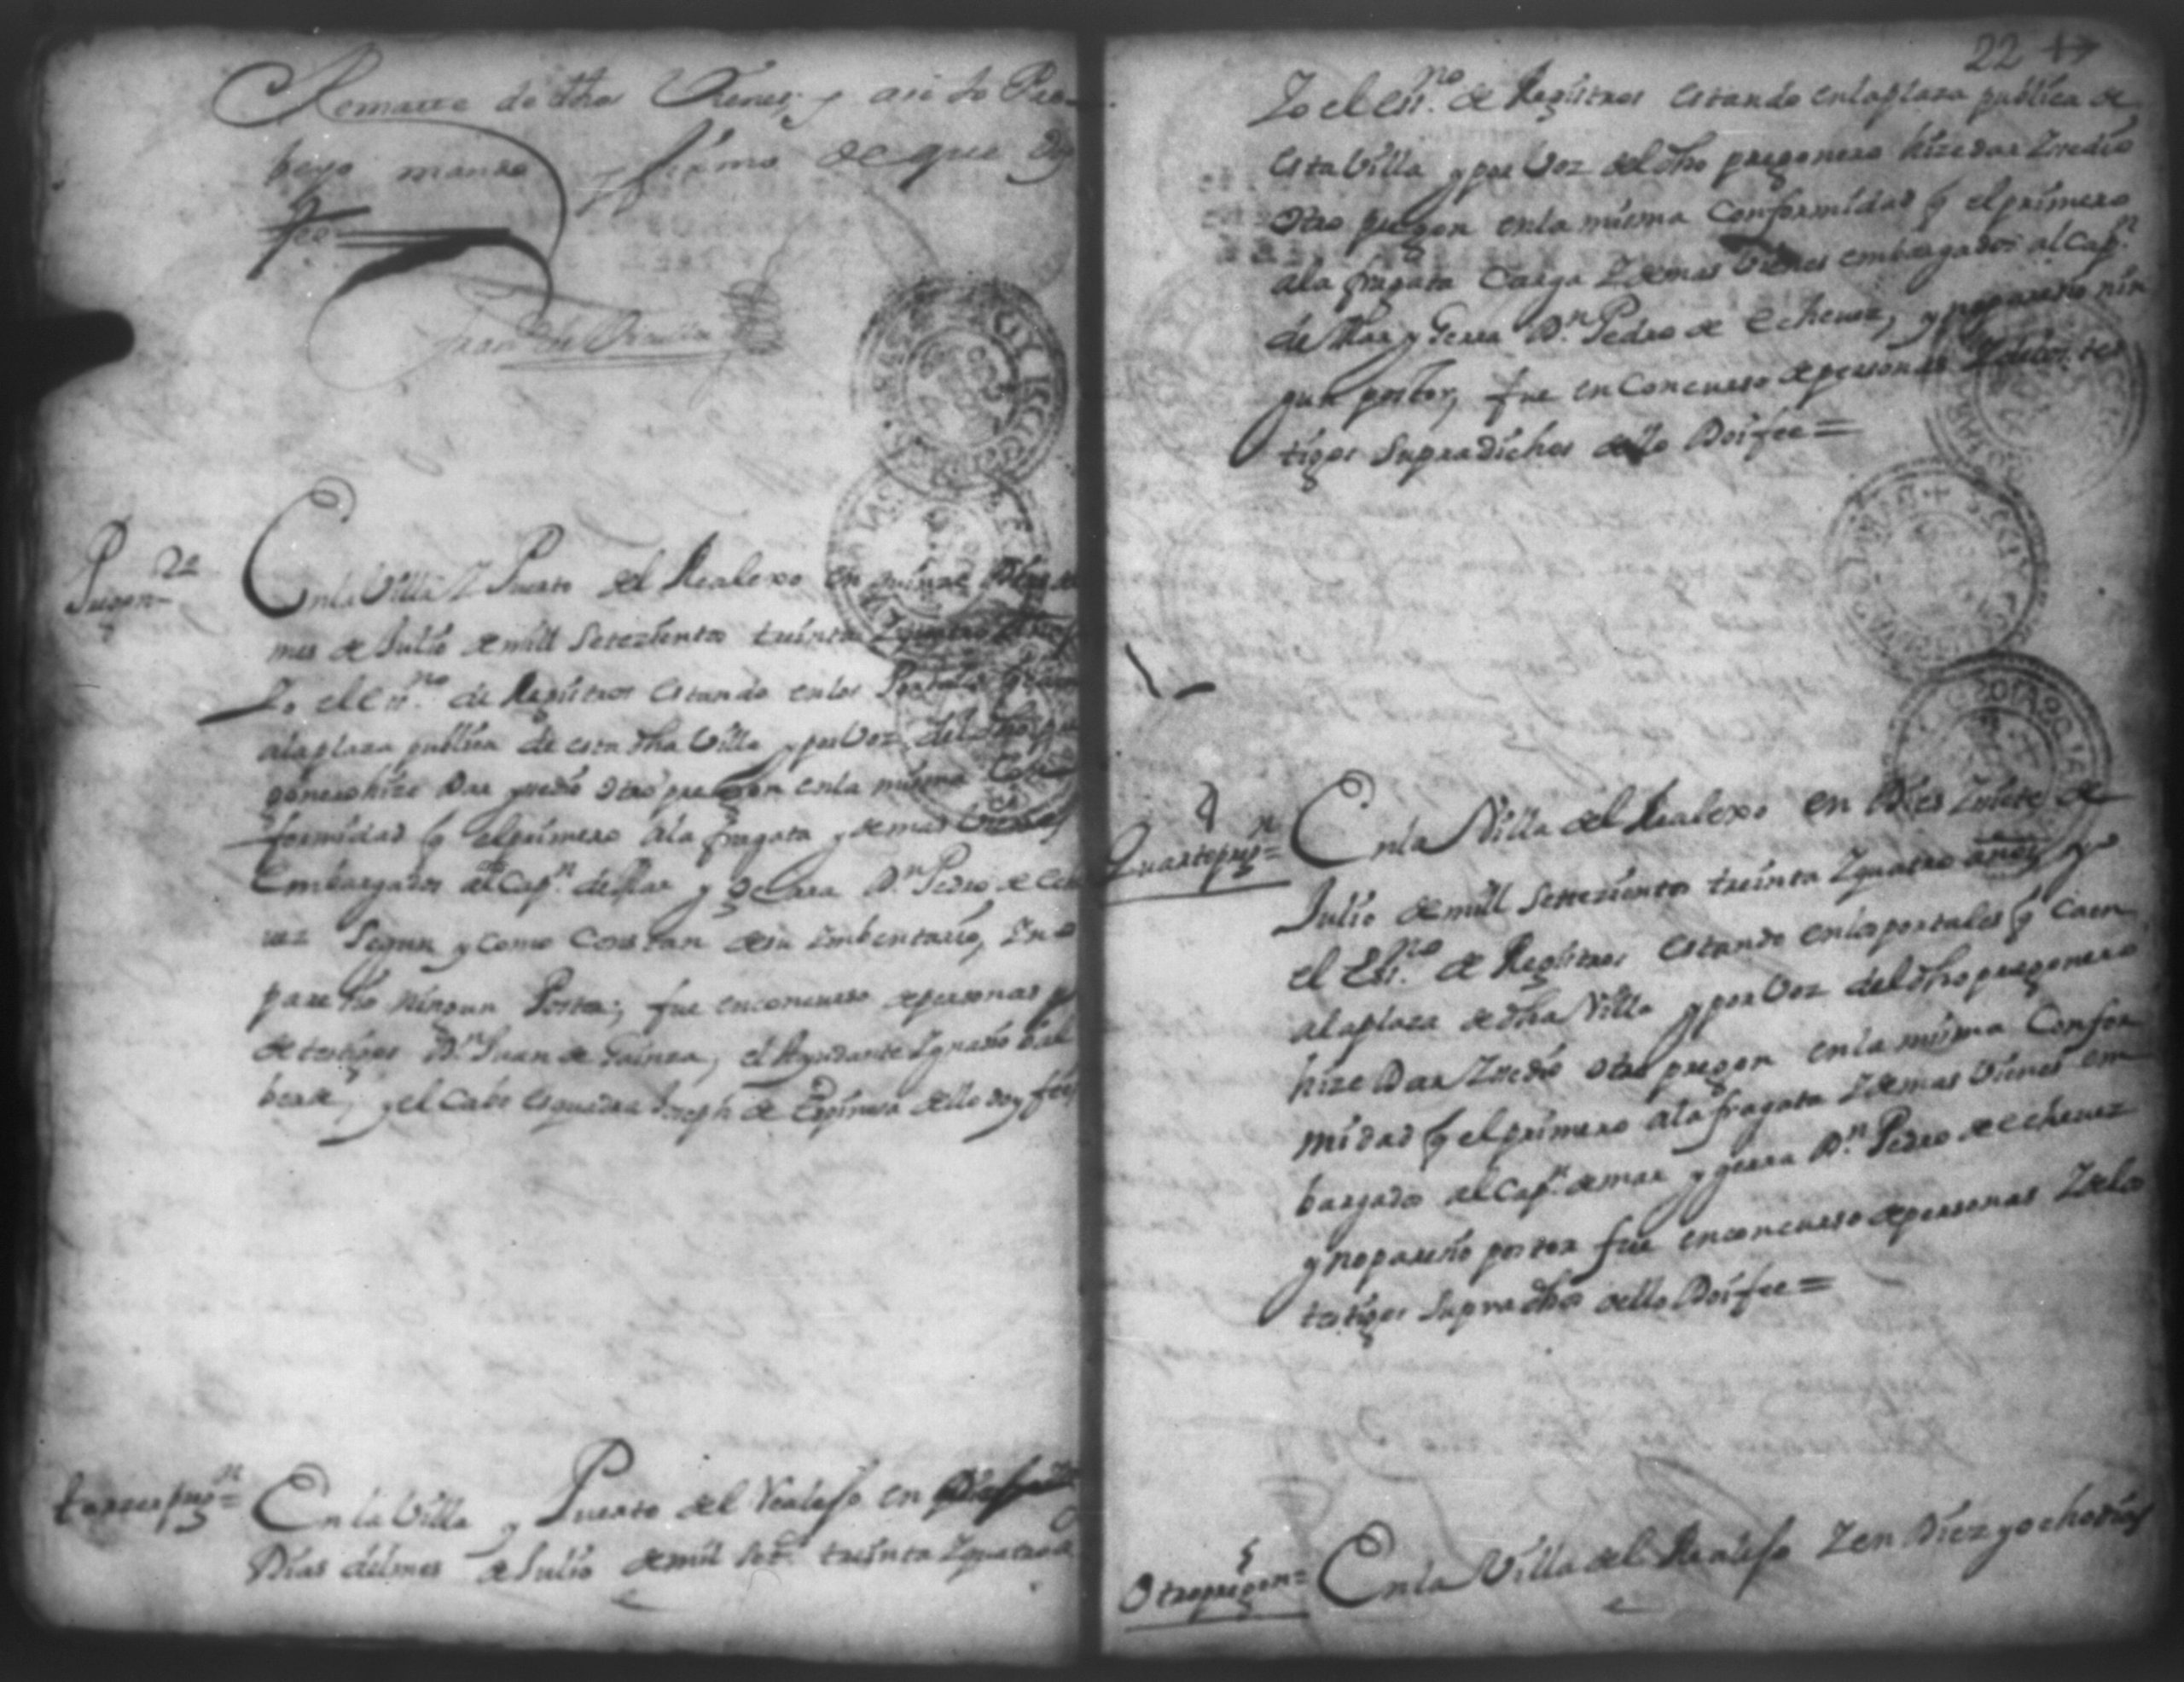 Remate de dhos Vienes, y asi lo Pro-
beyo mando y firmo de que doy
fee
Pregon 2o
En la Villa Z Puerto del Realexo en quinze Dias del
mes de Julio de mill Setezientos treinta Zquatro
Zo el Ess.no de Registros estando en los Portales
a la plaza publica de esta dha Villa y por Voz del dho pre
gonero hize Dar y se dio otro pregon en la misma Con
formidad q el primero a la fragata y demas Vienes
Embargados al Cap.n de Mar y Gerra D.n Pedro de Eche
uez Segun y como Constan de su Imbentario, Z no
parezio ningun Postor; fue en concurso de personas
de testigos D.n Juan de Gainza, el Ayudante Ygnazio
y el Cabo esquadra Joseph de Espinosa dello doy fee
terzer preg.n=
En la Villa y Puerto del Realejo en
Dias del mes de Julio de mil Set.s treinta Zquatro
22
Zo el Ess.no de Registros estando en la plaza publica de
esta Villa y por Voz del dho pregonero hize dar Zse dio
otro pregon en la misma Conformidad q el primero
a la fragata Carga Zdemas Vienes embargados al Cap.n
de Mar y Gerra D.n Pedro de Echeuez, y no parezio nin
gun postor, fue en Concurso de personas Zde los tes
tigos Supradichos dello Doi fee=
4
Quarto preg.n=
En la Villa del Realexo en Dies Zsiete de
Julio de mill Setezientos treinta Zquatro años yo
el Ess.no de Registros estando en los portales q Caen
a la plaza de dha Villa y por Voz del dho pregonero
hize Dar Zse dio otro pregon en la misma Confor
midad q el primero a la fragata Zdemas Vienes em
bargados al Cap.n de mar y gerra D.n Pedro de Echeuez
y no parezio postor fue en concurso de personas Zde los
testigos Supradhos dello Doi fee=
5
Otro pregon=
En la Villa del Realejo Z en Diez y ocho dias